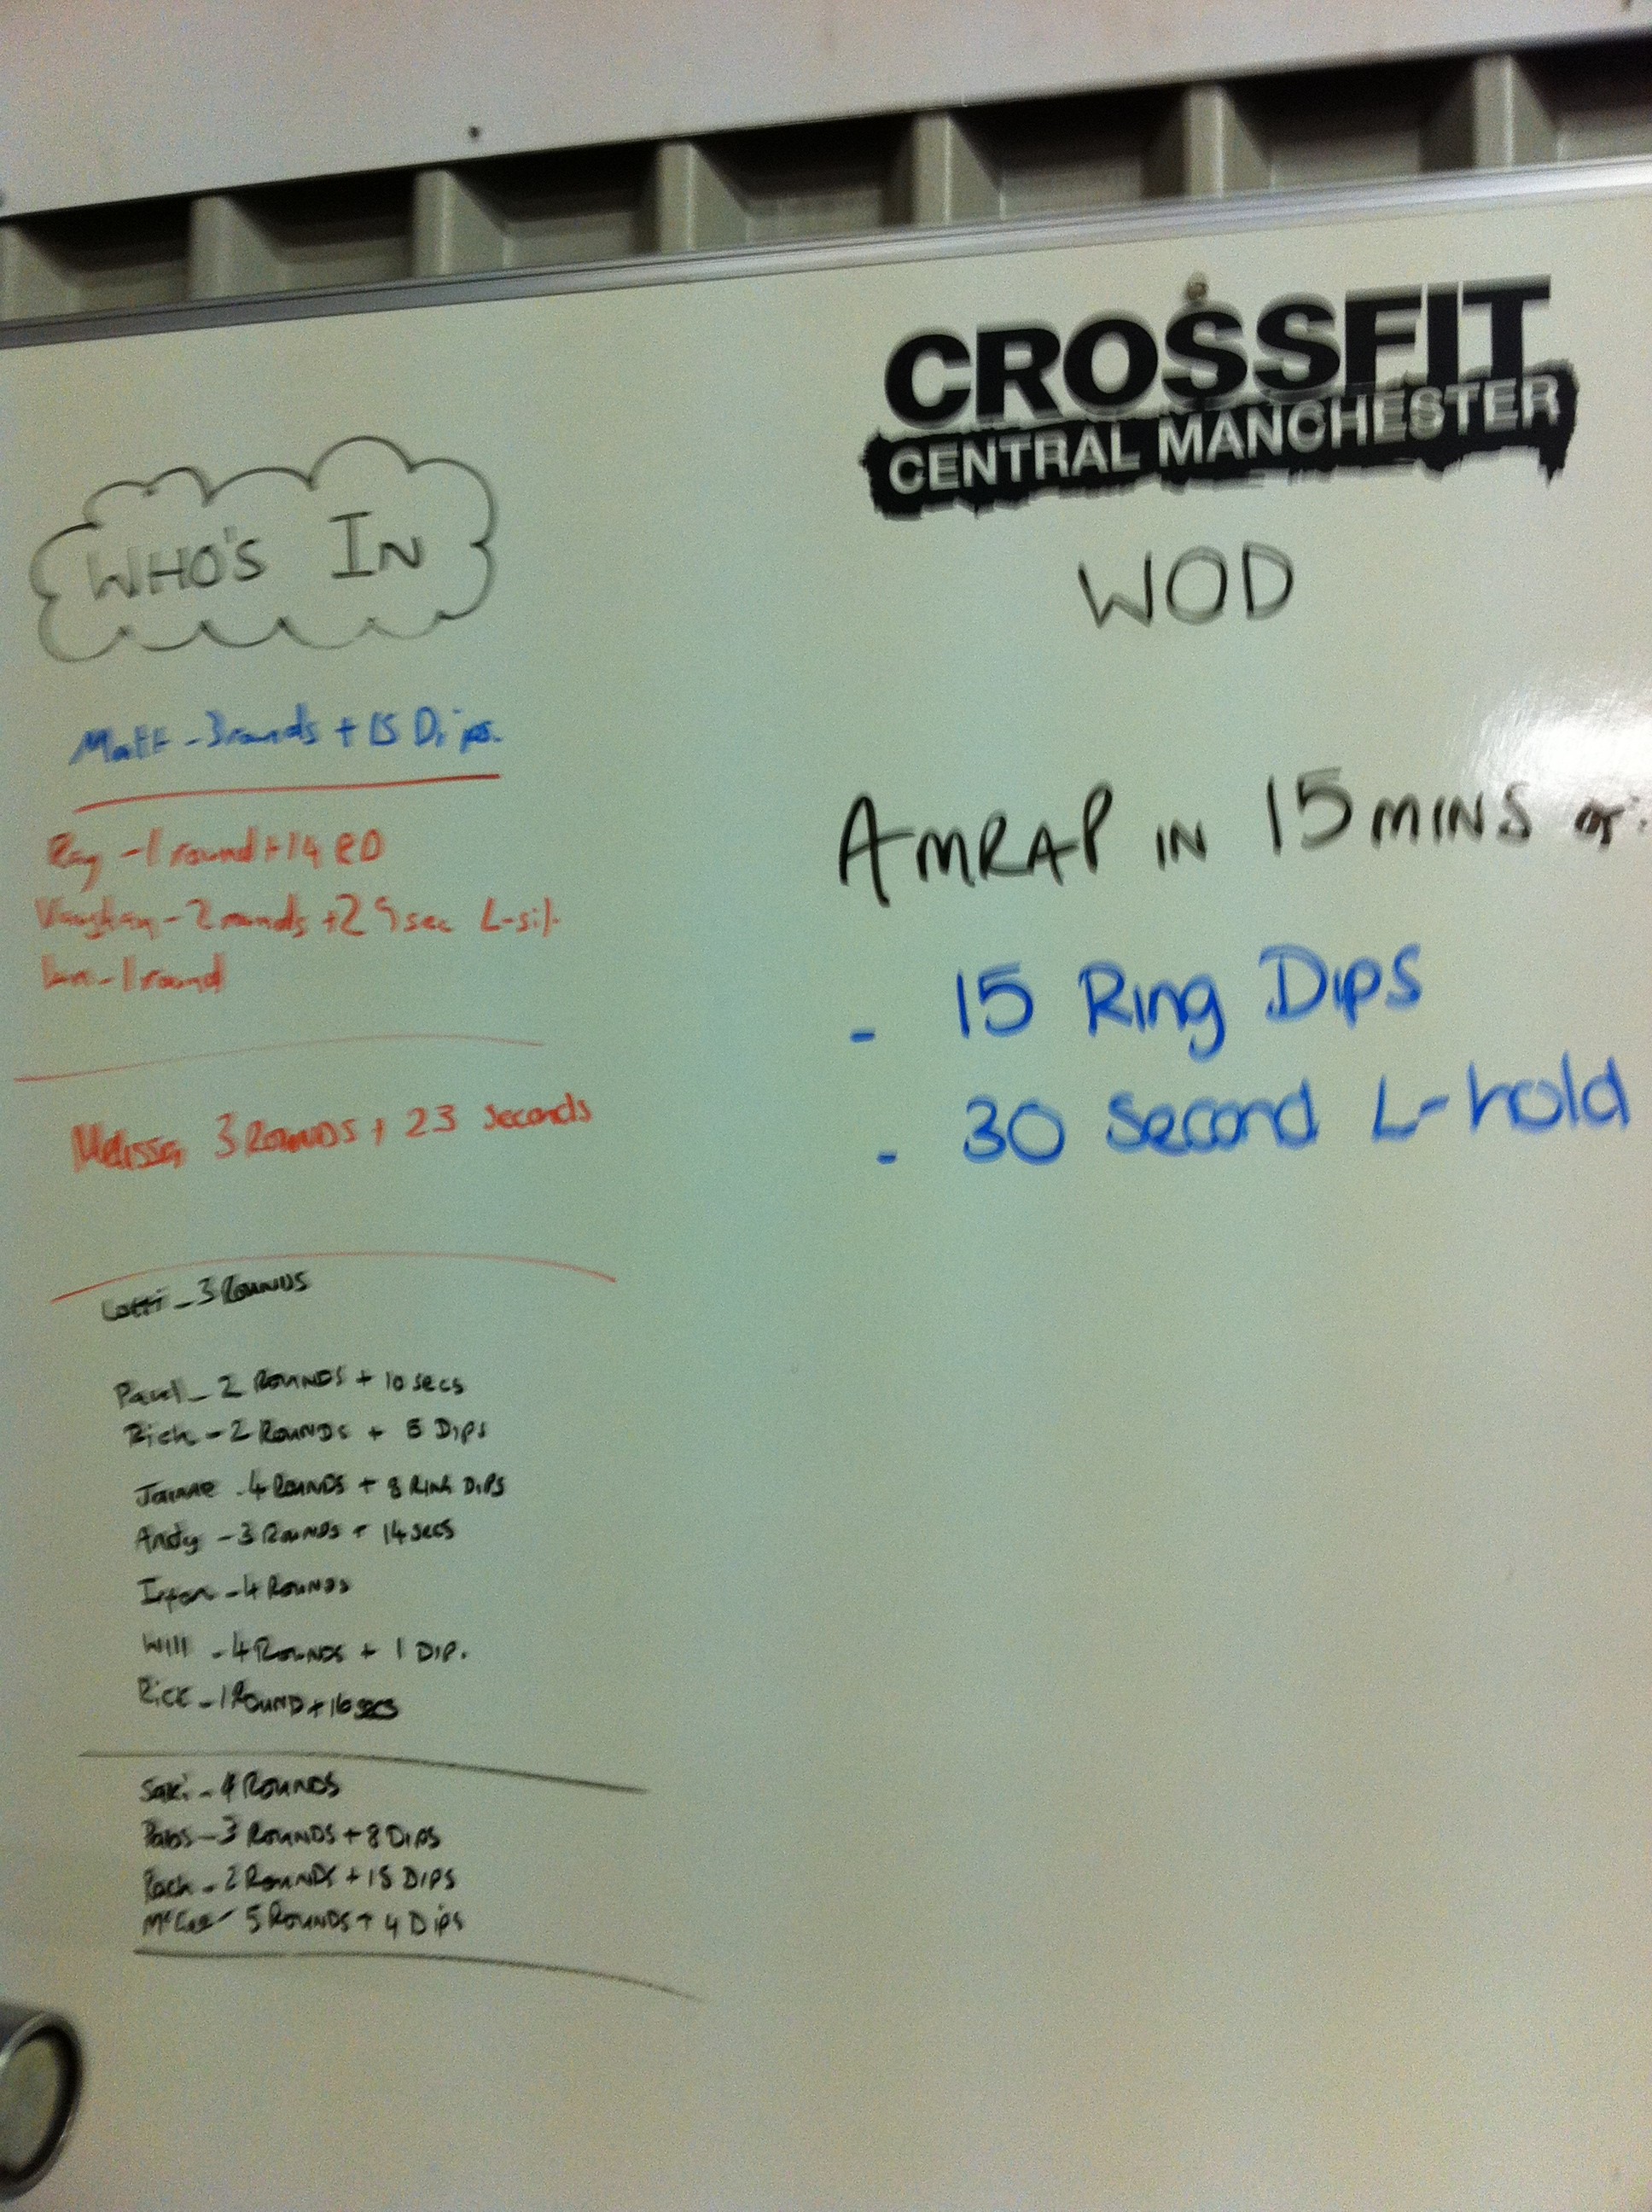 CROSSFIT
CENTRAL MANCHESTER
WHO'S IN
Matt - 3 rounds + 15 Dips.
Ray - 1 round + 14 RD
Vaughan - 2 rounds + 29 sec L-sit
Ian - 1 round
Melissa 3 ROUNDS + 23 seconds
Lotti - 3 ROUNDS
Paul - 2 ROUNDS + 10 secs
Rich - 2 ROUNDS + 5 DIPS
4 ROUNDS + 8 RING DIPS
Andy - 3 ROUNDS + 14 secs
- 4 ROUNDS
Will - 4 ROUNDS + 1 DIP.
Rick - 1 ROUND + 16 secs
Saki - 4 ROUNDS
Pabs - 3 ROUNDS + 8 DIPS
Rach - 2 ROUNDS + 15 DIPS
5 ROUNDS + 4 Dips
WOD
AMRAP IN 15 MINS of:
- 15 Ring Dips
- 30 Second L-hold